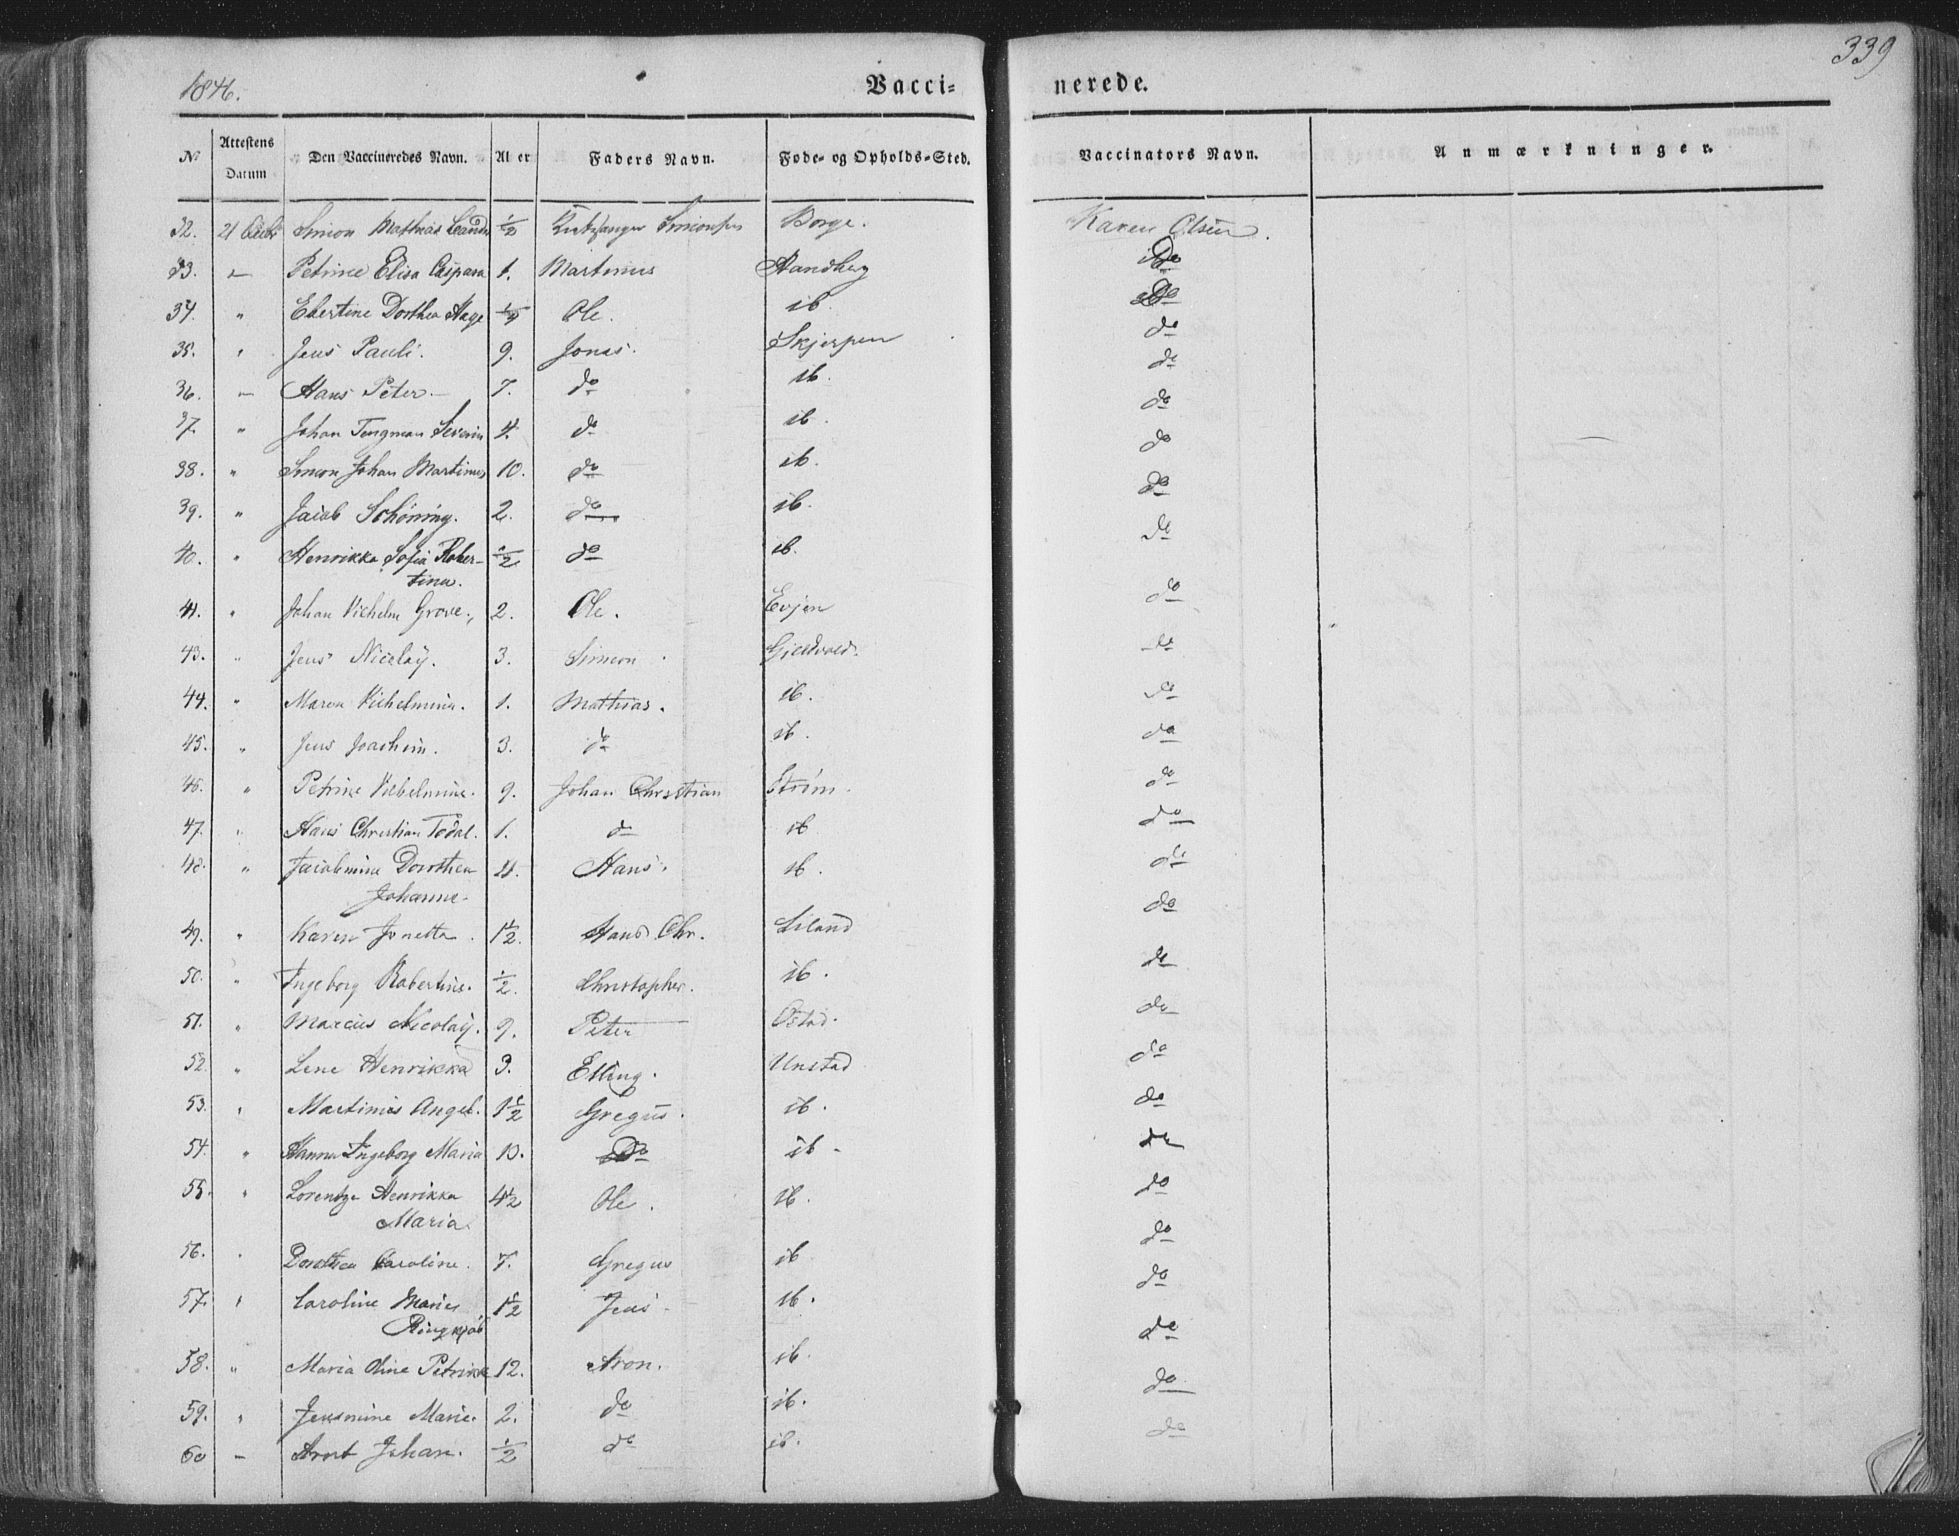 1846.
Vacci-
nerede.
339
No
Attestens Datum
Den Vaccineredes Navn.
Alder
Faders Navn.
Føde- og Opholds-Sted.
Vaccinators Navn.
Anmærkninger.
32. 21 Simon Mathias ½ Simonsen Borge. Karen Olsen.
33. " Petrine Elisa Caspara 1. Martinus Sandberg Do
34. " Ebertine Dorthea Hage Ole. ib. Do
35. " Jens Pauli. 9. Jonas. Skjerpen do
36. " Hans Peter. 7. do ib. do
37. " Johan Tengman Severin 4. do ib. do
38. " Simon Johan Martinus 10. do ib. do
39. " Jacob Schöning. 2. do ib. do
40. " Henrikka Sofia Rober- ½ do ib. do
tina.
41. " Johan Vilhelm Grove. 2. Ole. Evjen do
43. " Jens Nicolaÿ. 3. Simeon do
44. " Maren Vilhelmina. 1. Mathias. ib. do
45. " Jens Joachim. 3. do ib. do
46. " Petrine Vilhelmine. 9. Johan Christian Strøm. do
47. " Hans Christian Todal. 1. do ib do
48. " Jacobmine Dorothea 4. Hans. ib. do
Johanne.
49. " Karen Jonetta 1½. Hans Chr. Liland do
50. " Ingeborg Robertine. ½. Christopher. ib. do
51. " Marcus Nicolaÿ. 9. Peter Ostad. do
52. " Lene Henrikka 3. Elling. Unstad do
53. " Martinus Angel. 1½ Gregus. ib. do
54. " Hanna Ingeborg Maria 10. Do ib. do
55. " Lorentze Henrikka 4½ Ole. ib. do
Maria.
56. " Dorothea Caroline. 7. Gregus ib do
57. " Caroline Marie 1½ Jens ib. do
Ringkjøb
58. " Maria Oline Petrikke 12. Aron. ib. do
59. " Jensmine Marie. 2. do ib. do
60 " Arnt Johan. ½ do ib. do